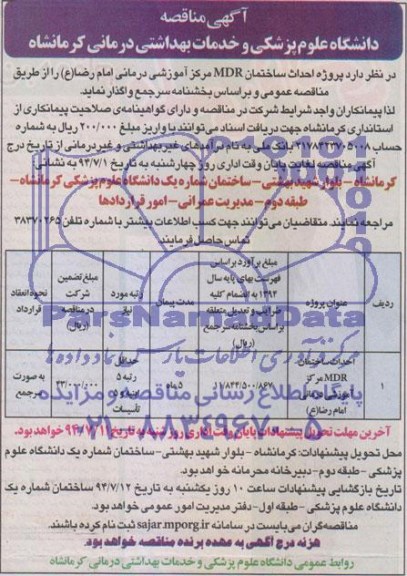 آگهی مناقصه
دانشگاه علوم پزشکی و خدمات بهداشتی درمانی کرمانشاه
در نظر دارد پروژه احداث ساختمان MDR مرکز آموزشی درمانی امام رضا(ع) را از طریق
مناقصه عمومی و براساس بخشنامه سرجمع واگذار نماید.
لذا پیمانکاران واجد شرایط شرکت در مناقصه و دارای گواهینامه‌ی صلاحیت پیمانکاری از
استانداری کرمانشاه جهت دریافت اسناد می‌توانند با واریز مبلغ ۲۰۰/۰۰۰ ریال به شماره
حساب ۲۱۷۸۲۲۳۷۰۵۰۰۸ بانک ملی به نام درآمدهای غیر بهداشتی و غیردرمانی از تاریخ درج
آگهی مناقصه لغایت پایان وقت اداری روز چهارشنبه به تاریخ ۹۴/۷/۱ به نشانی
کرمانشاه – بلوار شهید بهشتی – ساختمان شماره یک دانشگاه علوم پزشکی کرمانشاه –
طبقه دوم – مدیریت عمرانی – امور قراردادها
مراجعه نمایند. متقاضیان می‌توانند جهت کسب اطلاعات بیشتر با شماره تلفن ۳۸۳۷۰۲۶۵
تماس حاصل فرمایند.
ردیف
عنوان پروژه
مبلغ برآورد براساس
فهرست بهای پایه سال
۱۳۹۴ به انضمام کلیه
ضرایب و تعدیل متعلقه
براساس بخشنامه سرجمع
(ریال)
مدت پیمان
رتبه مورد
نیاز
مبلغ تضمین
شرکت
در مناقصه
(ریال)
نحوه انعقاد
قرارداد
۱
احداث ساختمان
MDR مرکز
آموزشی درمانی
امام رضا(ع)
۵ ماه
حداقل
رتبه ۵
ابنیه و ۵
تأسیسات
به صورت
سرجمع
ParsNamadData
مرکز فرآوری اطلاعات پارس نماد داده‌ها
پایگاه اطلاع رسانی مناقصه و مزایده
۰۲۱-۸۸۳۴۹۶۷۰-۵
آخرین مهلت تحویل پیشنهادات پایان وقت اداری روز شنبه به تاریخ ۹۴/۷/۱۱ خواهد بود.
محل تحویل پیشنهادات: کرمانشاه – بلوار شهید بهشتی – ساختمان شماره یک دانشگاه علوم
پزشکی – طبقه دوم – دبیرخانه محرمانه خواهد بود.
تاریخ بازگشایی پیشنهادات ساعت ۱۰ روز یکشنبه به تاریخ ۹۴/۷/۱۲ ساختمان شماره یک
دانشگاه علوم پزشکی – طبقه اول – دفتر مدیریت امور عمومی خواهد بود.
مناقصه‌گران می‌بایست در سامانه sajar.mporg.ir ثبت نام کرده باشند.
هزینه درج آگهی به عهده برنده مناقصه خواهد بود.
روابط عمومی دانشگاه علوم پزشکی و خدمات بهداشتی درمانی کرمانشاه